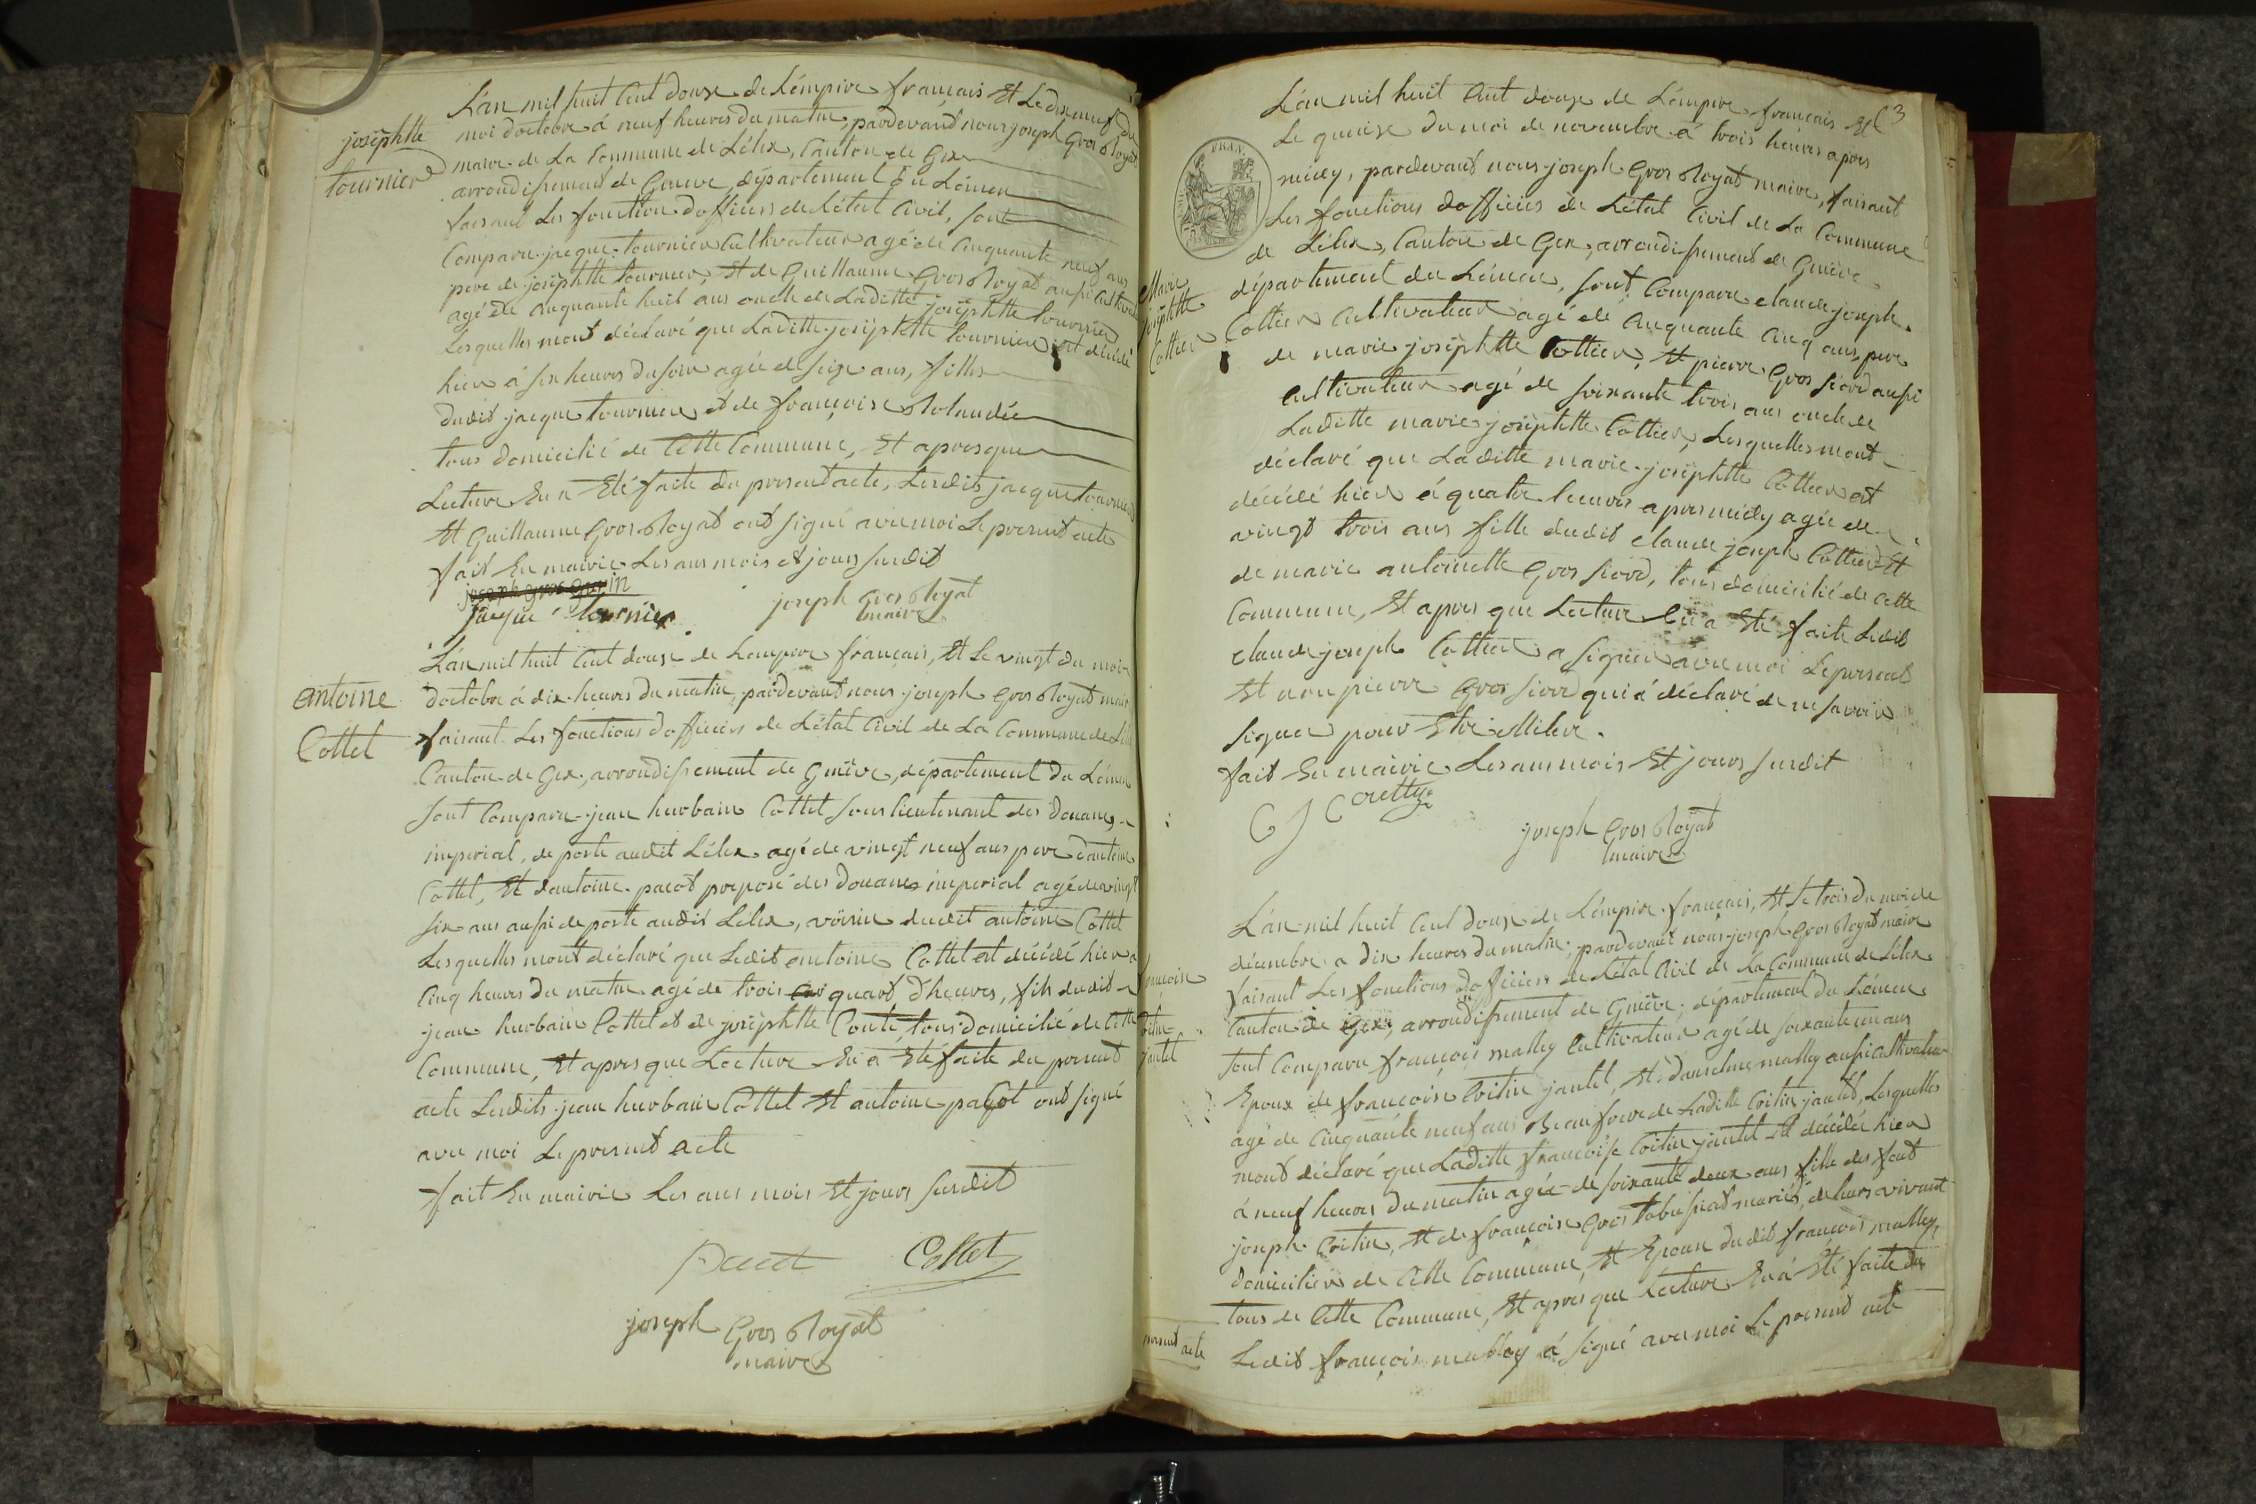 josephtte
tournier
L'an mil huit Cent douze de L'émpire français Et Le dix neuf du
moi doctobre á neuf heures du matin, pardevant nous joseph Gros Royat
maire de La Commune de Lélex, Canton de Gex
arrondissement de Geneve, département du Léman
faisant Les fonction dofficiers de Létat Civil, sont
Comparu jacque tournier Cultivateur agé de Cinquante neuf ans
pere de josephtte tournier, Et de Guillaume Gros Royat aussi Cultivateur
agé de Cinquante huit ans oncle de Laditte josephtte tournier
Lesquelles mont déclaré que Laditte josephtte tournier est décédé
hier á six heures du soir agée de seize ans, fille
dudit jacque tournier et de françoise Rolandée
tous domicilié de Cette Commune, Et apresque
Lecture En a Eté faite du present acte, Lesdits jacque tournier
Et Guillaume Gros Royat ont signé avec moi Le present acte
fait En mairie Les ans mois et jours susdit
joseph gros gurin
jacque tournier
joseph Gros Royat
maire
antoine
Cottet
L'an mil huit Cent douze de Lempire français, Et Le vingt du moi
doctobre á dix heures du matin, pardevant nous joseph Gros Royat maire
faisant Les fonctions dofficiers de Létat Civil de La Commune de Lélex
Canton de Gex, arrondissement de Genève, département du Léman
sont Comparu jean hurbain Cottet sous lieutenant des douanes
imperial, de poste audit Lélex agé de vingt neuf ans pere dantoine
Cottet, Et dantoine pacot preposé des douanes imperial agé de vingt
six ans aussi de poste audit Lelex, voisin dudit antoine Cottet
Lesquelles mont déclaré que Ledit antoine Cottet est décédé hier a
Cinq heures du matin agé de trois quart d'heures, fils dudit
jean hurbain Cottet et de josephtte Conté, tous domicilié de Cette
Commune, Et apres que Lecture En a Eté faite du present
acte Lesdits jean hurbain Cottet Et antoine pacot ont signé
avec moi Le present acte
fait En mairie Les ans mois Et jours susdit
Pacot Cottet
joseph Gros Royat
maire
3
FRAN.
Marie
josephtte
Cottier
L'an mil huit Cent douze de L'émpire français Et
Le quinze du moi de novembre á trois heures apres
midy, pardevant nous joseph Gros Royat maire, faisant
Les fonctions dofficiers de Létat Civil de La Commune
de Lélex, Canton de Gex, arrondissement de Genève
département du Léman, sont Comparu claude joseph
Cottier Cultivateur agé de Cinquante Cinq ans, pere
de marie josephtte Cottier, Et pierre Gros fiord aussi
Cultivateur agé de soixante trois ans oncle de
Laditte marie josephtte Cottier, Lesquelles mont
déclaré que Laditte marie josephtte Cottier est
décédé hier á quatre heures apres midy agée de
vingt trois ans fille dudit claude joseph Cottier Et
de marie antoinette Gros fiord, tous domicilié de Cette
Commune, Et apres que Lecture En a Eté faite Ledit
claude joseph Cottier a signé avec moi Le present
Et non pierre Gros fiord qui á déclaré de ne savoir
signer pour Etre illitére.
fait En mairie Les ans mois Et jours susdit
C J C
joseph Gros Royat
maire
françoise
Critin
jantet
L'an mil huit Cent douze de L'émpire français, Et Le trois du moi de
décembre a dix heures du matin, pardevant nous joseph Gros Royat maire
faisant Les fonctions dofficiers de Létat Civil de La Commune de Lélex
Canton de Gex, arrondissement de Genève, département du Léman
sont Comparu françois malley Cultivateur agé de soixante un ans
Epoux de françoise Critin jantet, Et danselme malley aussi Cultivateur
agé de Cinquante neuf ans Beaufrere de Laditte Critin jantet, Lesquelles
mont déclaré que Laditte françoise Critin jantet est décédée hier
á neuf heures du matin agée de soixante deux ans fille des feut
joseph Critin, Et de françoise Gros tabussiat mariés, de leurs vivant
domiciliér de Cette Commune, Et Epouse dudit françois malley,
tous de Cette Commune, Et apres que Lecture En á Eté faite du
present acte
Ledit françois malley á signé avec moi Le present acte